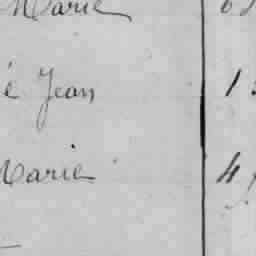 Marie 6
é Jean 1
Marie 4